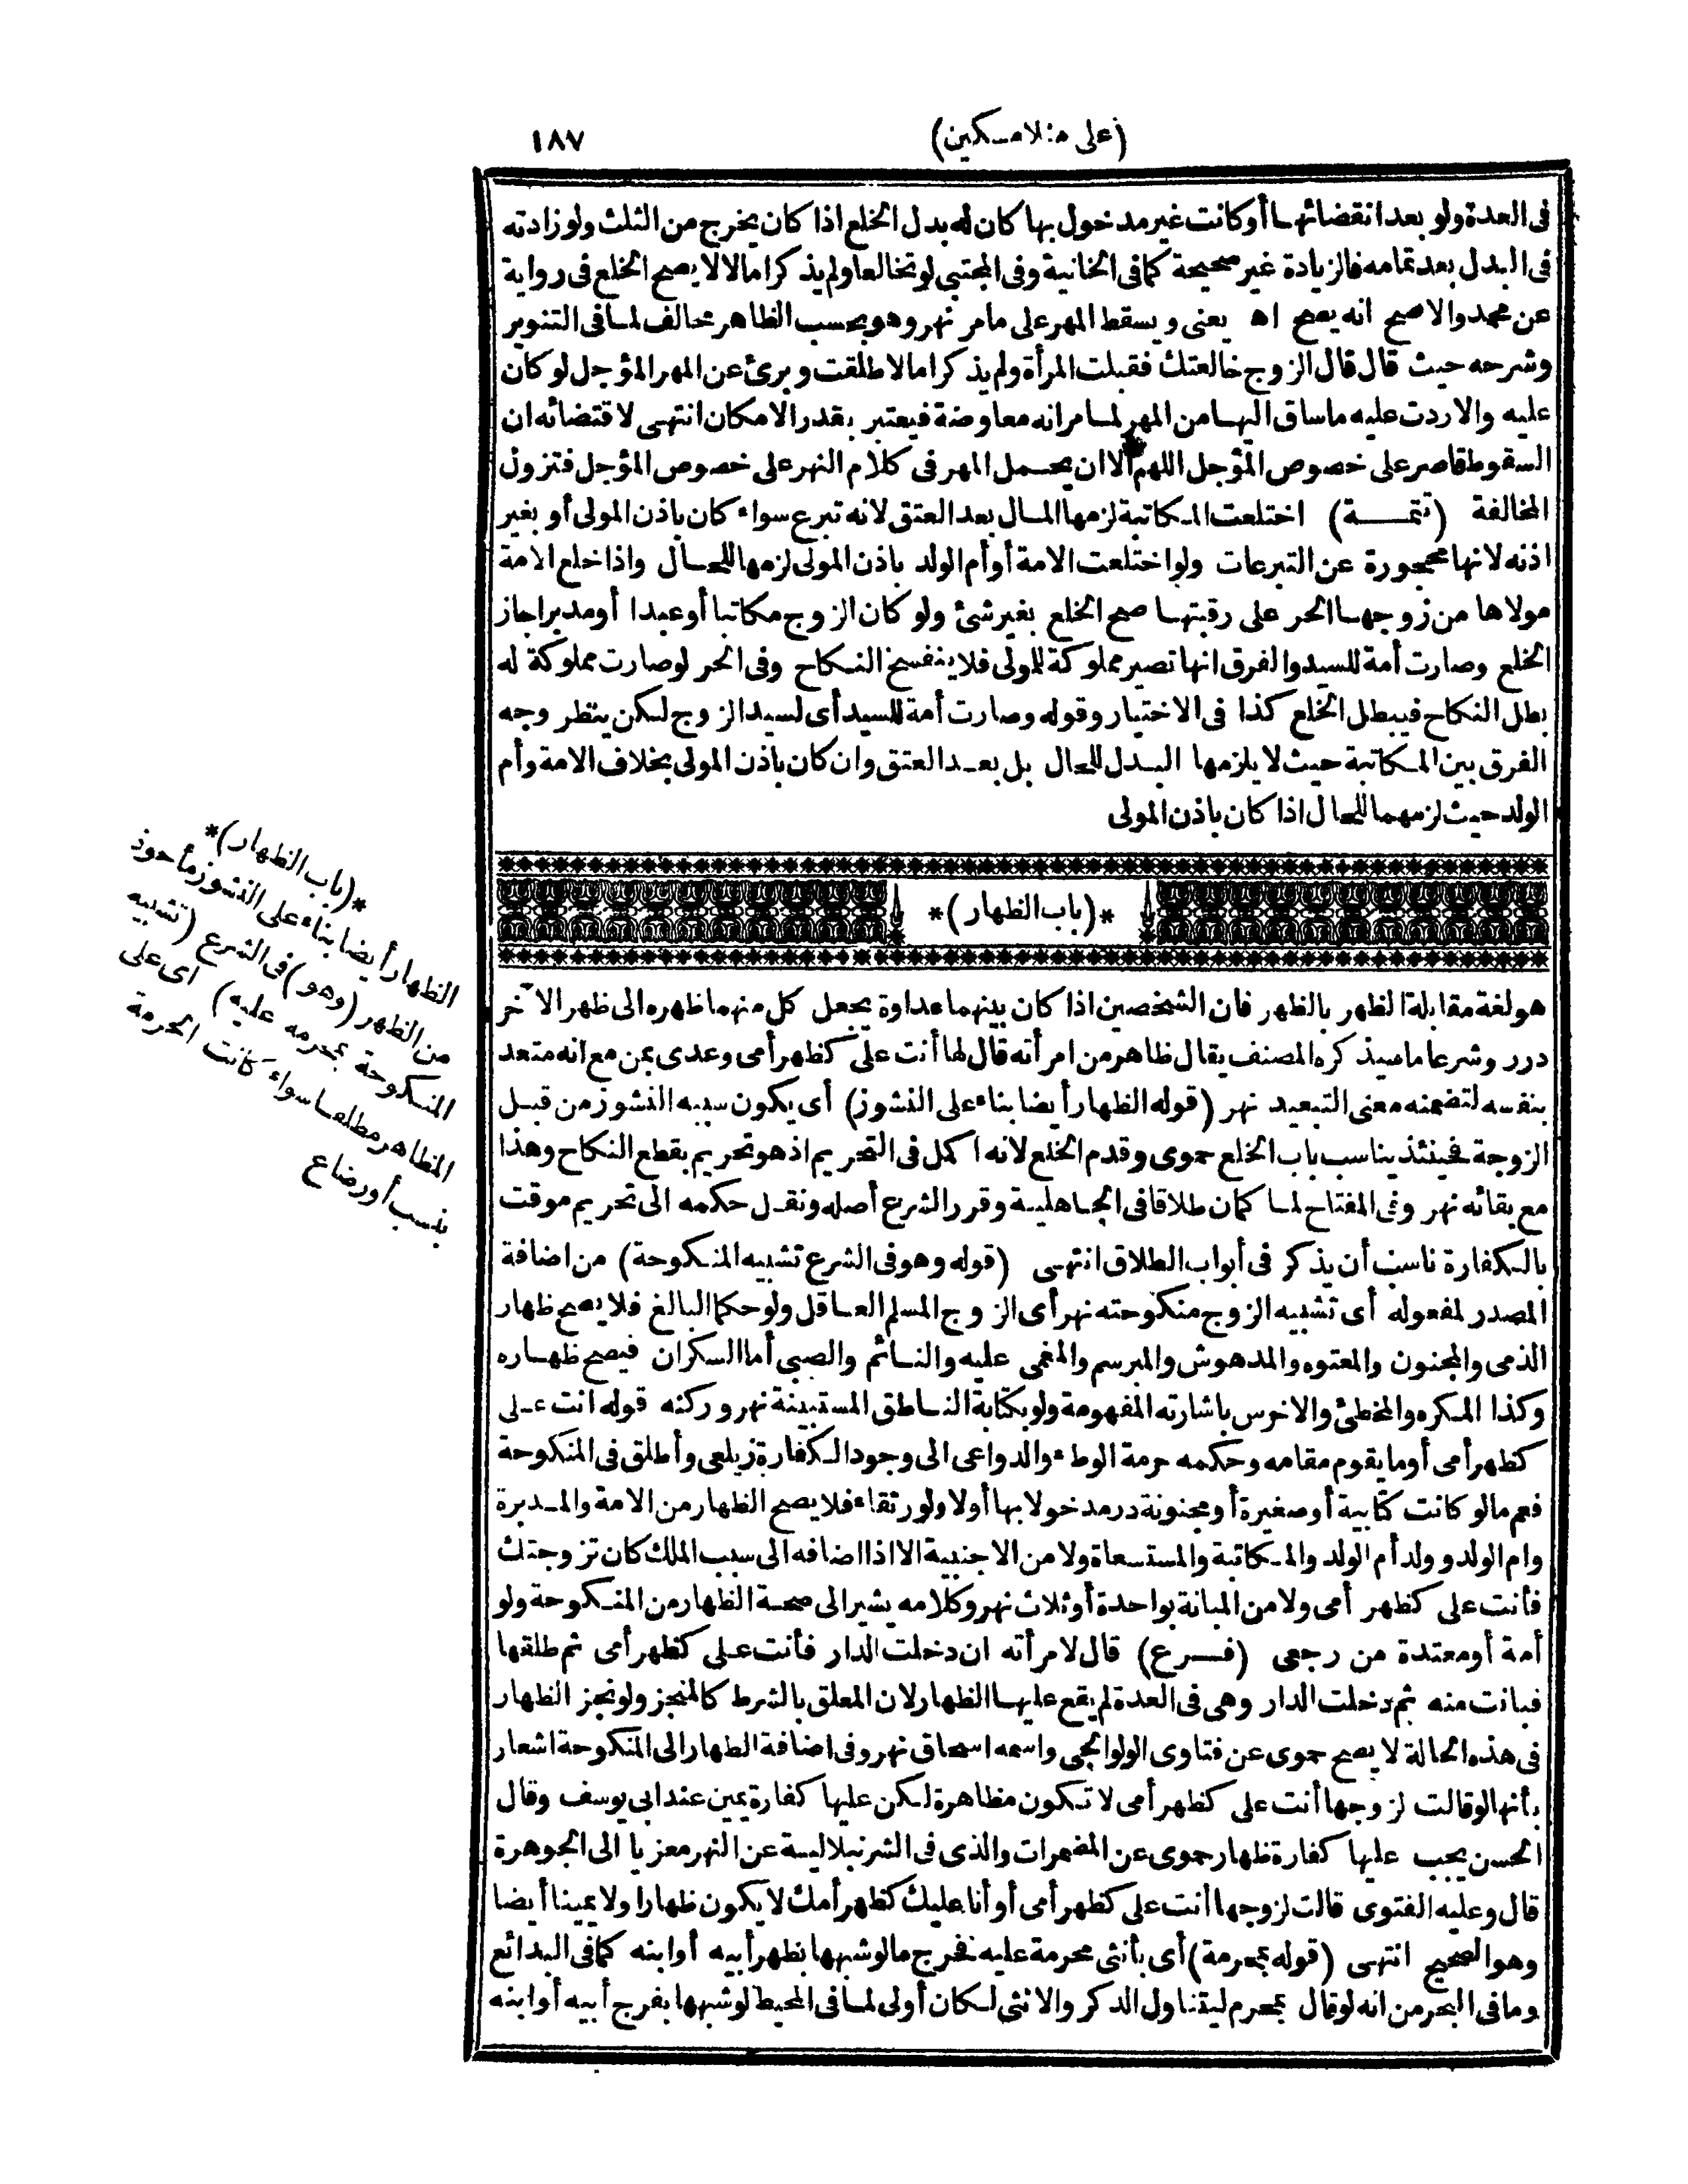 (على منلا مسكين)
١٨٧
فى العدة ولو بعد انقضائها أو كانت غير مدخول بها كان له بدل الخلع اذا كان يخرج من الثلث ولو زادته
فى البدل بعد تمامه فالزيادة غير صحيحة كما فى الخانية وفى المجتبى لو تخالعا ولم يذكرا مالا لا يصح الخلع فى رواية
عن محمد والاصح انه يصح اه يعنى ويسقط المهر على ما مر نهر وهو بحسب الظاهر مخالف لما فى التنوير
وشرحه حيث قال قال الزوج خالعتك فقبلت المرأة ولم يذكرا مالا طلقت وبرئ عن المهر المؤجل لو كان
عليه والا ردت عليه ما ساق اليها من المهر لما مر انه معاوضة فيعتبر بقدر الامكان انتهى لاقتضائه ان
السقوط قاصر على خصوص المؤجل اللهم الا ان يحمل المهر فى كلام النهر على خصوص المؤجل فتزول
المخالفة (تتمـــة) اختلعت المكاتبة لزمها المال بعد العتق لانه تبرع سواء كان باذن المولى أو بغير
اذنه لانها محجورة عن التبرعات ولو اختلعت الامة أو أم الولد باذن المولى لزمها للحال واذا خلع الامة
مولاها من زوجها الحر على رقبتها صح الخلع بغير شئ ولو كان الزوج مكاتبا أو عبدا أو مدبرا جاز
الخلع وصارت أمة للسيد والفرق انها تصير مملوكة للمولى فلا ينفسخ النكاح وفى الحر لو صارت مملوكة له
بطل النكاح فيبطل الخلع كذا فى الاختيار وقوله وصارت أمة للسيد أى لسيد الزوج لكن ينظر وجه
الفرق بين المكاتبة حيث لا يلزمها البدل للحال بل بعد العتق وان كان باذن المولى بخلاف الامة وأم
الولد حيث لزمهما للحال اذا كان باذن المولى
*(باب الظهار)*
هو لغة مقابلة الظهر بالظهر فان الشخصين اذا كان بينهما عداوة يجعل كل منهما ظهره الى ظهر الآخر
درر وشرعا ما سيذكره المصنف يقال ظاهر من امرأته قال لها أنت علىّ كظهر أمى وعدى بمن مع انه متعد
بنفسه لتضمنه معنى التبعيد نهر (قوله الظهار أيضا بناء على النشوز) أى يكون سببه النشوز من قبل
الزوجة فحينئذ يناسب باب الخلع حموى وقدم الخلع لانه اكمل فى التحريم اذ هو تحريم بقطع النكاح وهذا
مع بقائه نهر وفى المفتاح لما كان طلاقا فى الجاهلية وقرر الشرع أصله ونقل حكمه الى تحريم موقت
بالكفارة ناسب أن يذكر فى أبواب الطلاق انتهى (قوله وهو فى الشرع تشبيه المنكوحة) من اضافة
المصدر لمفعوله أى تشبيه الزوج منكوحته نهر أى الزوج المسلم العاقل ولو حكما البالغ فلا يصح ظهار
الذمى والمجنون والمعتوه والمدهوش والمبرسم والمغمى عليه والنائم والصبى أما السكران فيصح ظهاره
وكذا المكره والمخطئ والاخرس باشارته المفهومة ولو بكتابة الناطق المستبينة نهر وركنه قوله انت على
كظهر أمى أو ما يقوم مقامه وحكمه حرمة الوطء والدواعى الى وجود الكفارة زيلعى وأطلق فى المنكوحة
فعم ما لو كانت كتابية أو صغيرة أو مجنونة درر مدخولا بها أولا ولو رتقاء فلا يصح الظهار من الامة والمدبرة
وام الولد وولد أم الولد والمكاتبة والمستسعاة ولا من الاجنبية الا اذا اضافه الى سبب الملك كان تزوجتك
فأنت على كظهر أمى ولا من المبانة بواحدة أو ثلاث نهر وكلامه يشير الى صحة الظهار من المنكوحة ولو
أمة أو معتدة من رجعى (فـــرع) قال لامرأته ان دخلت الدار فأنت على كظهر أمى ثم طلقها
فبانت منه ثم دخلت الدار وهى فى العدة لم يقع عليها الظهار لان المعلق بالشرط كالمنجز ولو نجز الظهار
فى هذه الحالة لا يصح حموى عن فتاوى الولوالجى واسمه اسحاق نهر وفى اضافة الظهار الى المنكوحة اشعار
بأنها لو قالت لزوجها أنت على كظهر أمى لا تكون مظاهرة لكن عليها كفارة يمين عند ابى يوسف وقال
الحسن يجب عليها كفارة ظهار حموى عن المضمرات والذى فى الشرنبلالية عن النهر معزيا الى الجوهرة
قال وعليه الفتوى قالت لزوجها أنت على كظهر أمى أو أنا عليك كظهر أمك لا يكون ظهارا ولا يمينا أيضا
وهو الصحيح انتهى (قوله بمحرمة) أى بأنثى محرمة عليه فخرج ما لو شبهها بظهر أبيه أو ابنه كما فى البدائع
وما فى البحر من انه لو قال بمحرم ليتناول الذكر والانثى لكان أولى لما فى المحيط لو شبهها بفرج أبيه أو ابنه
*(باب الظهار)*
الظهار أيضا بناء على النشوز مأخوذ
من الظهر (وهو) فى الشرع (تشبيه
المنكوحة بمحرمه عليه) اى على
المظاهر مطلقا سواء كانت الحرمة
بنسب أو رضاع